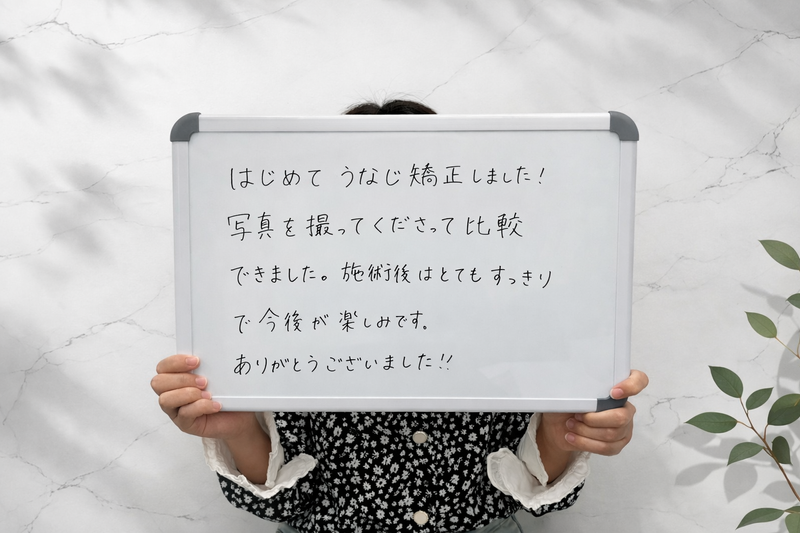 はじめて うなじ矯正しました!
写真を撮ってくださって比較
できました。施術後はとてもすっきり
で今後が楽しみです。
ありがとうございました!!